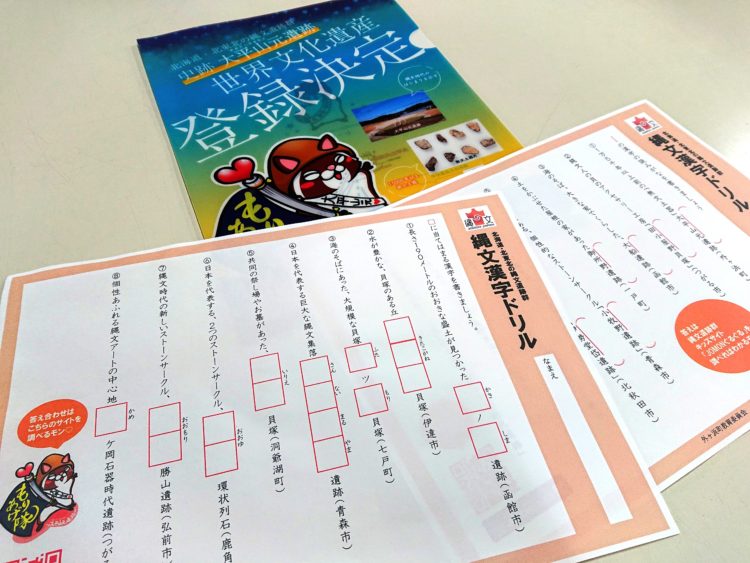 北海道・北東北の縄文遺跡群
史跡 大平山元遺跡
世界文化遺産
登録決定
大平山元遺跡
もり
あげ
縄文
北海道・北東北の縄文遺跡群
縄文漢字ドリル
なまえ
□に当てはまる漢字を書きましょう。
①長さ100メートルのおおきな盛土が見つかった
かき
ノ
しま
遺跡(函館市)
②水が豊かな、貝塚のある丘
きたこがね
貝塚(伊達市)
③海のそばにあった、大規模な貝塚
ふた
ツ
もり
貝塚(七戸町)
④日本を代表する巨大な縄文集落
さん
ない
まる
やま
遺跡(青森市)
⑤共同の祭し場やお墓があった、
いりえ
貝塚(洞爺湖町)
⑥日本を代表する、2つのストーンサークル、
おおゆ
環状列石(鹿角
⑦縄文時代の新しいストーンサークル、
おおもり
勝山遺跡(弘前市
⑧個性あふれる縄文アートの中心地
かめ
ケ岡石器時代遺跡(つが
答え合わせは
こちらのサイトを
調べるモン♡
もり
あげ
隊
縄文
北海道・北東北の縄文遺跡群
縄文漢字ドリル
小牧野遺跡(青森市)
堂岱遺跡(北秋田市)
答えは
縄文遺跡群
キッズサイト
「JOMONぐるぐる
調べればわかる
外ヶ浜町教育委員会